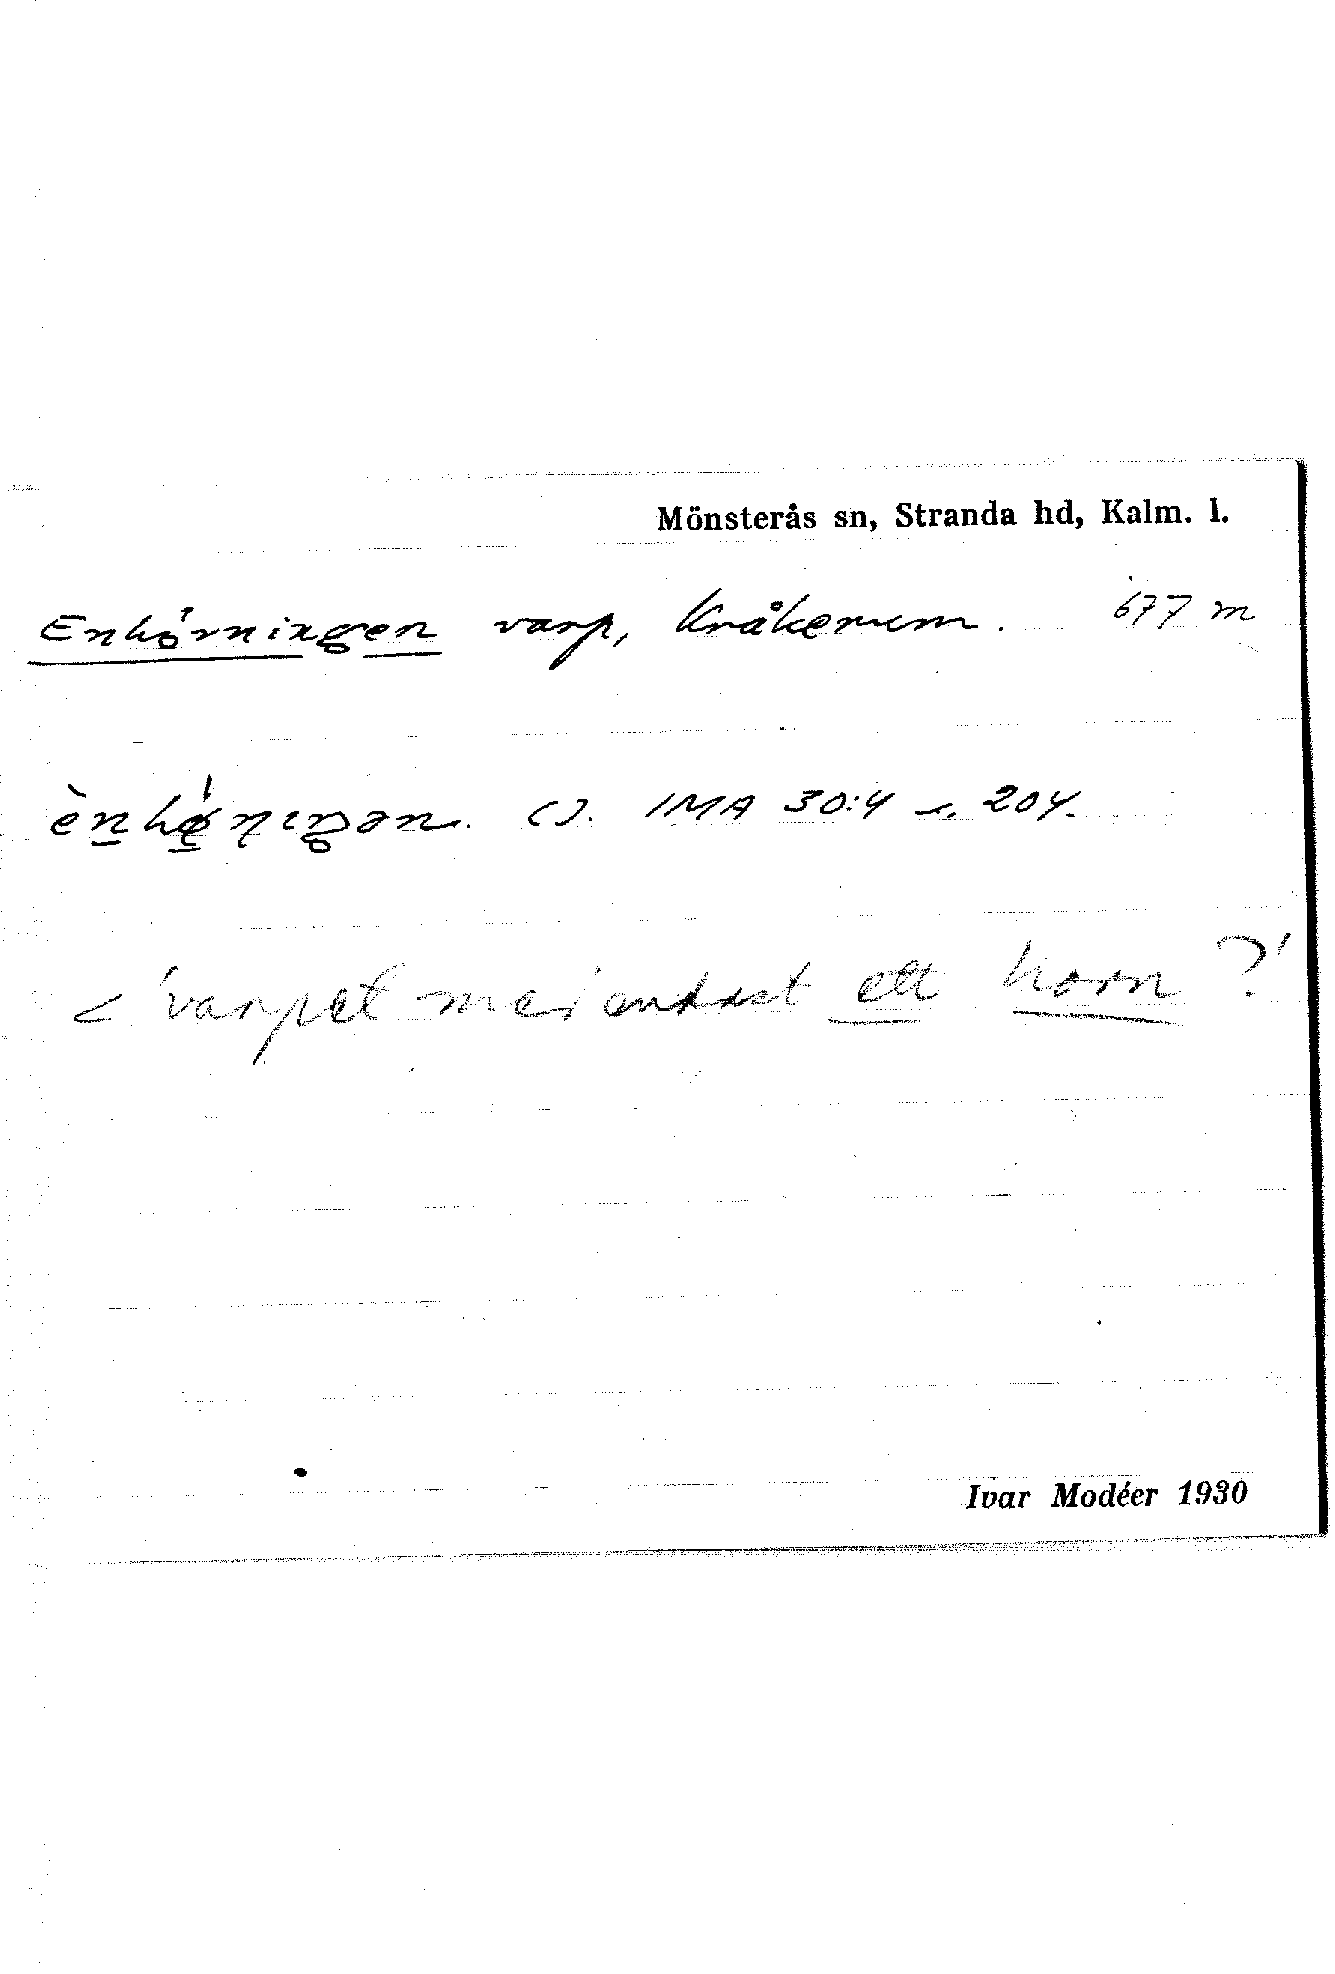 Mönsterås sn, Stranda hd, Kalm. l.
Enhörningen varp, Kråkerum. 677 m
ènhǿn̩ɩŋən. (). IMA 30:4 s. 204.
< 'varpet med endast ett horn?'
Ivar Modéer 1930